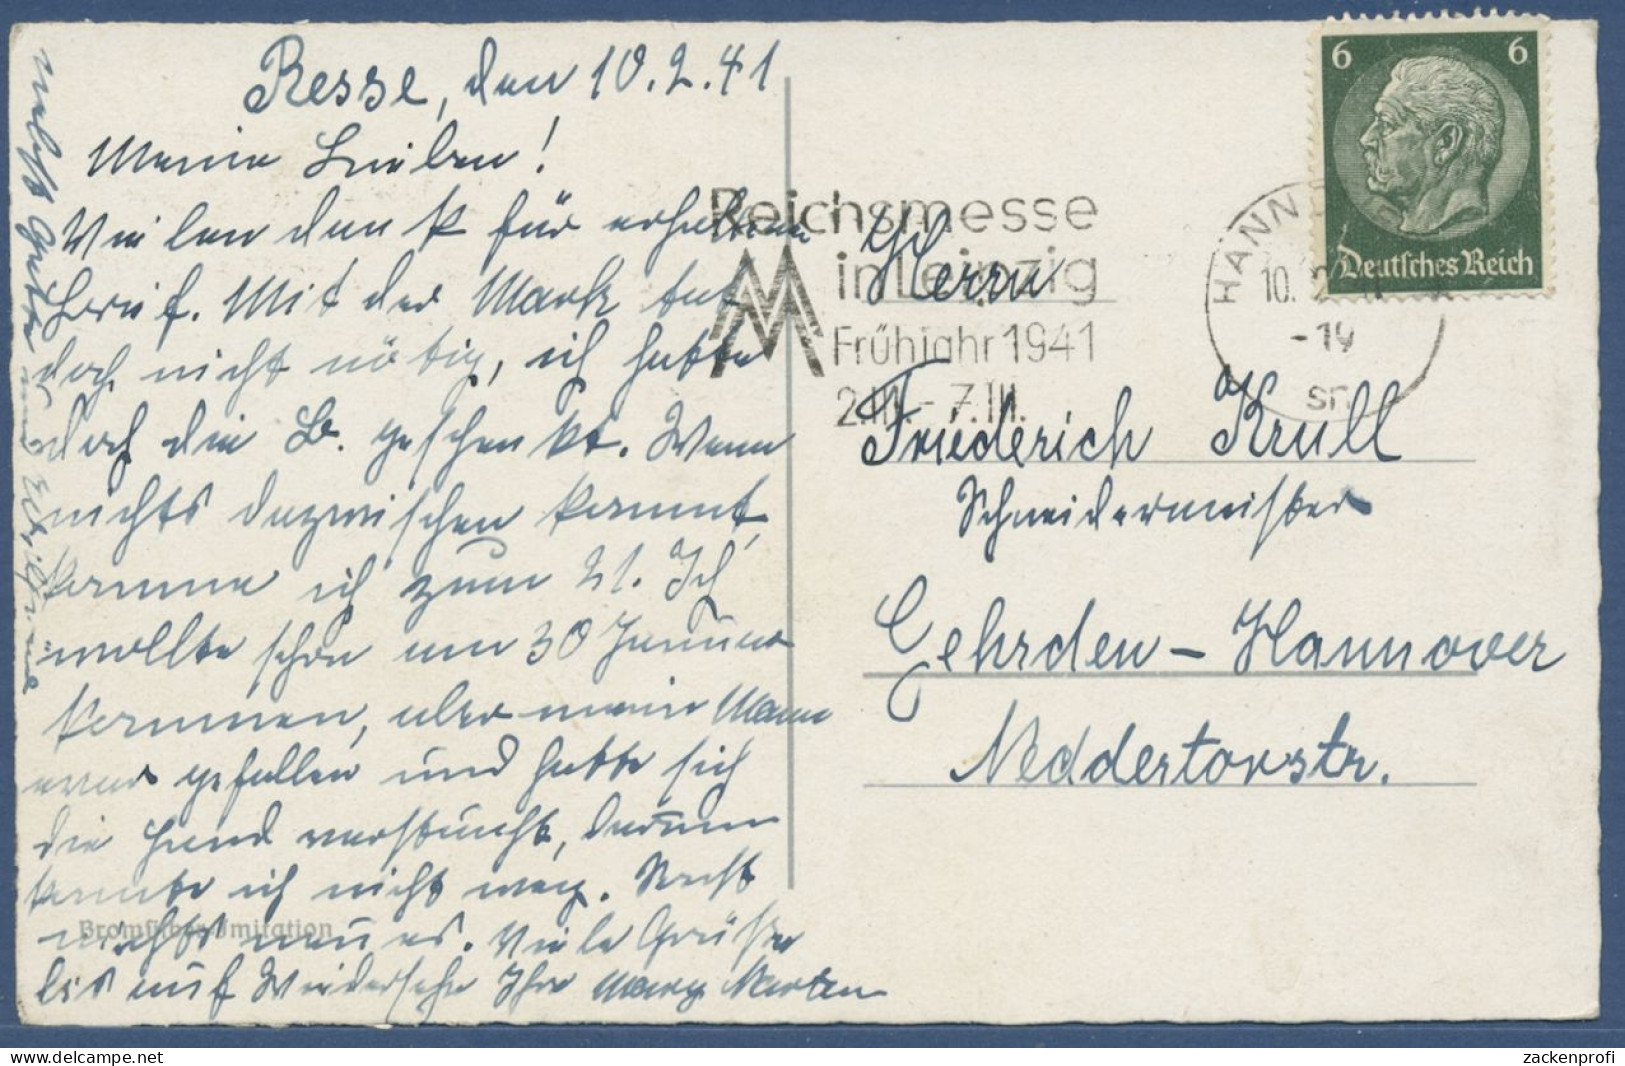 Resse, den 10.2.41
Meine Lieben!
Vielen dank für erhaltenen
Brief. Mit der Mark tut
doch nicht nötig, ich hatte
doch die B. geschenkt. Wenn
nichts dazwischen kommt,
komme ich zum 21. Ich
wollte schon am 30 Januar
kommen, aber mein Mann
war gefallen und hatte sich
die Hand verstaucht, darum
konnte ich nicht weg. Sonst
nichts neues. Viele Grüße
bis auf Wiedersehn Ihre Mary Marten
nebst Gatte und
Bromsilber-Imitation
Reichsmesse
in Leipzig
Frühjahr 1941
2.III.-7.III.
HANNOVER
10. 2. 41
-19
sn
6 6
Deutsches Reich
Herrn
Friederich Krull
Schneidermeister
Gehrden - Hannover
Neddertorstr.
zackenprofi
www.delcampe.net